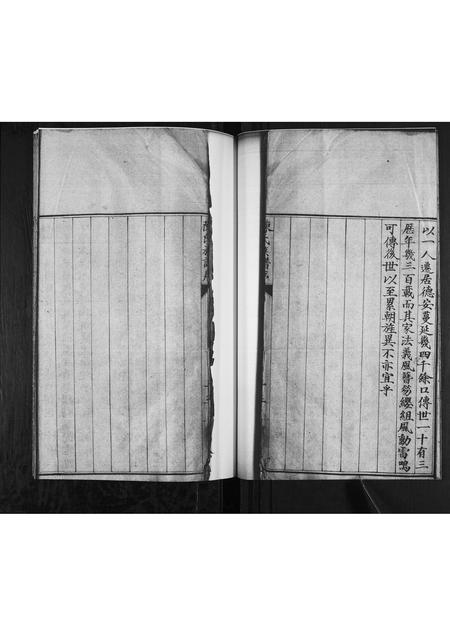 以一人遷居德安蔓延幾四千餘口傳世一十有三
歷年幾三百載而其家法義風簪纓組風動雷鳴
可傳後世以至累朝旌異不亦宜乎
陳氏